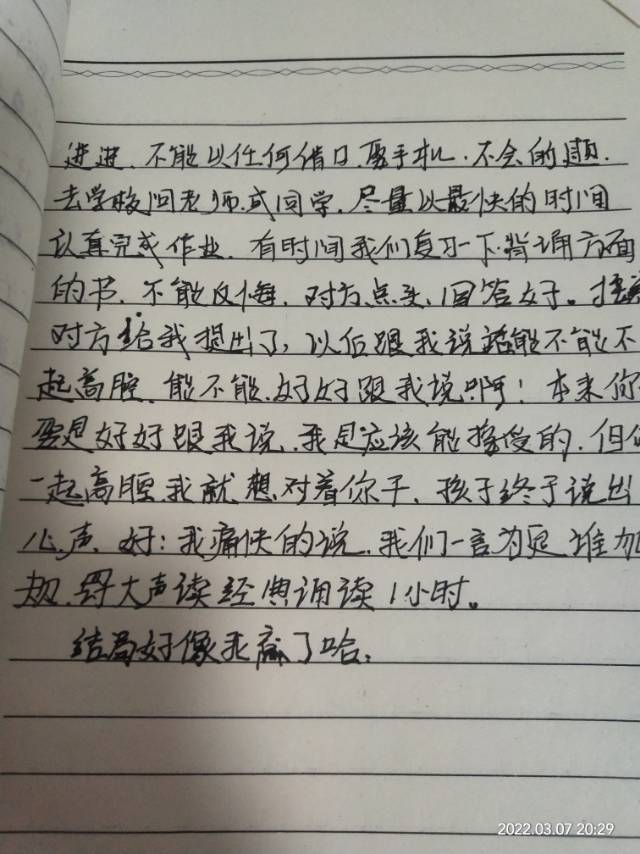 进进、不能以任何借口要手机、不会的题、
去学校问老师或同学、尽量以最快的时间
认真完成作业、有时间我们复习一下背诵方面
的书、不能反悔、对方点头、回答好。接着
对方给我提出了，以后跟我说话能不能不
起高腔、能不能好好跟我说啊！本来你
要是好好跟我说、我是应该能接受的、但你
一起高腔我就想对着你干、孩子终于说出
心声、好：我痛快的说、我们一言为定谁加
规、得大声读经典诵读1小时。
结局好像我赢了哈，
2022.03.07 20:29